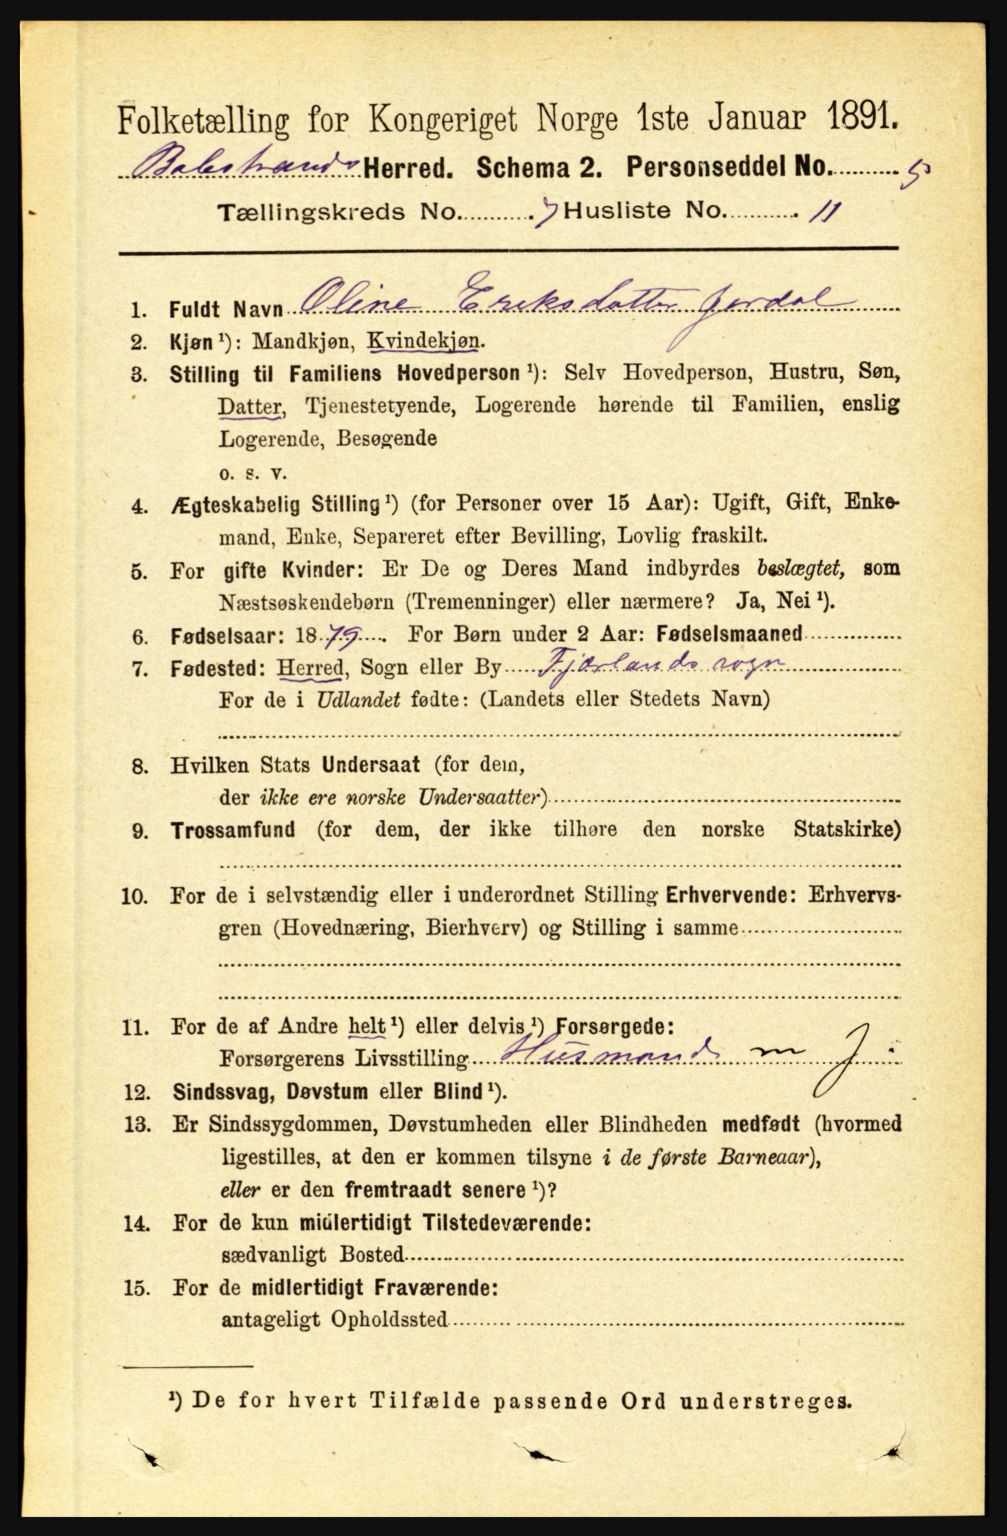 Folketælling for Kongeriget Norge 1ste Januar 1891.
Balestrands Herred. Schema 2. Personseddel No. 5
Tællingskreds No. 7 Husliste No. 11
1. Fuldt Navn Oline Eriksdatter Jordal
2. Kjøn ¹): Mandkjøn, Kvindekjøn.
3. Stilling til Familiens Hovedperson ¹): Selv Hovedperson, Hustru, Søn,
Datter, Tjenestetyende, Logerende hørende til Familien, enslig
Logerende, Besøgende
o. s. v.
4. Ægteskabelig Stilling ¹) (for Personer over 15 Aar): Ugift, Gift, Enke-
mand, Enke, Separeret efter Bevilling, Lovlig fraskilt.
5. For gifte Kvinder: Er De og Deres Mand indbyrdes beslægtet, som
Næstsøskendebørn (Tremenninger) eller nærmere? Ja, Nei ¹).
6. Fødselsaar: 1879. For Børn under 2 Aar: Fødselsmaaned
7. Fødested: Herred, Sogn eller By Fjærlands sogn
For de i Udlandet fødte: (Landets eller Stedets Navn)
8. Hvilken Stats Undersaat (for dem,
der ikke ere norske Undersaatter)
9. Trossamfund (for dem, der ikke tilhøre den norske Statskirke)
10. For de i selvstændig eller i underordnet Stilling Erhvervende: Erhvervs-
gren (Hovednæring, Bierhverv) og Stilling i samme
11. For de af Andre helt ¹) eller delvis ¹) Forsørgede:
Forsørgerens Livsstilling Husmand m J.
12. Sindssvag, Døvstum eller Blind ¹).
13. Er Sindssygdommen, Døvstumheden eller Blindheden medfødt (hvormed
ligestilles, at den er kommen tilsyne i de første Barneaar),
eller er den fremtraadt senere ¹)?
14. For de kun midlertidigt Tilstedeværende:
sædvanligt Bosted
15. For de midlertidigt Fraværende:
antageligt Opholdssted
¹) De for hvert Tilfælde passende Ord understreges.